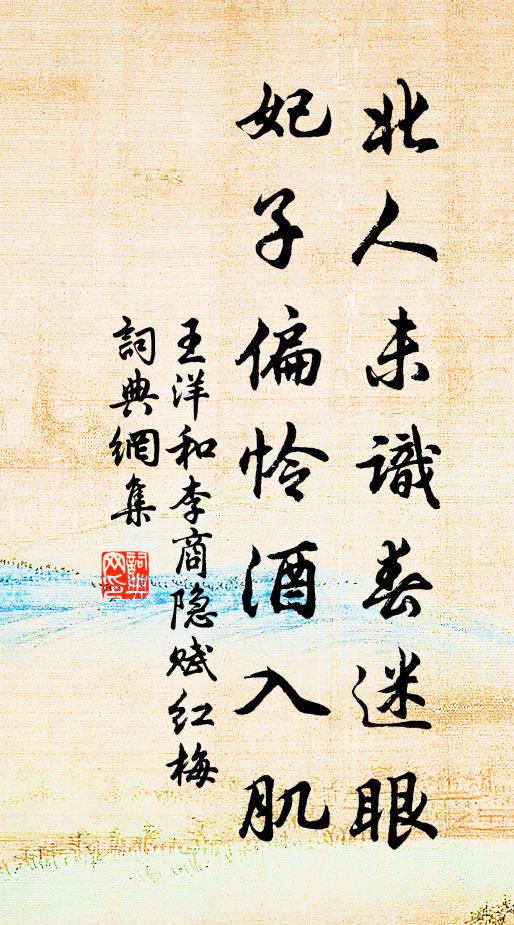 北人未識春迷眼
妃子偏怜酒入肌
王洋和李商隐赋红梅
詞典網集